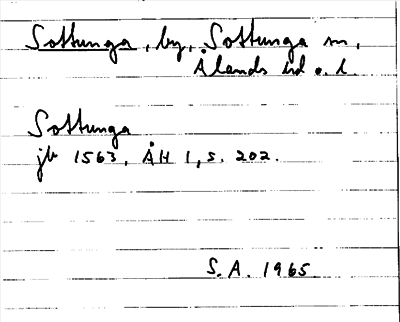 Sottunga, by, Sottunga sn,
Ålands hd o. l.
Sottunga
jb 1563, ÅH 1, s. 202.
S. A. 1965